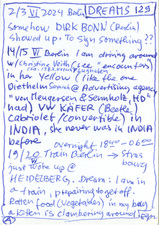 2/3 VI 2024 Berlin DREAMS 129
somehow DIRK BONN (Berlin)
showed up. To sign something??
14/15 VI Berlin I am driving around
w/ christine With ("Lee" encounters)
in her yellow (like the one
Diethelm at Advertising agency
"von Mengersen & Semholtz, HB"
had) VW KÄFER (Beetle
cabriolet/convertible) in
INDIA, she never was in INDIA
before overnight 18 - 06
19/20 Train Berlin → Stras
just woke up @ bourg
HEIDELBERG. Dream: I am in
a train, preparing to get off.
Rotten food (vegetables) in my bag,
a kitten is clambering around
A